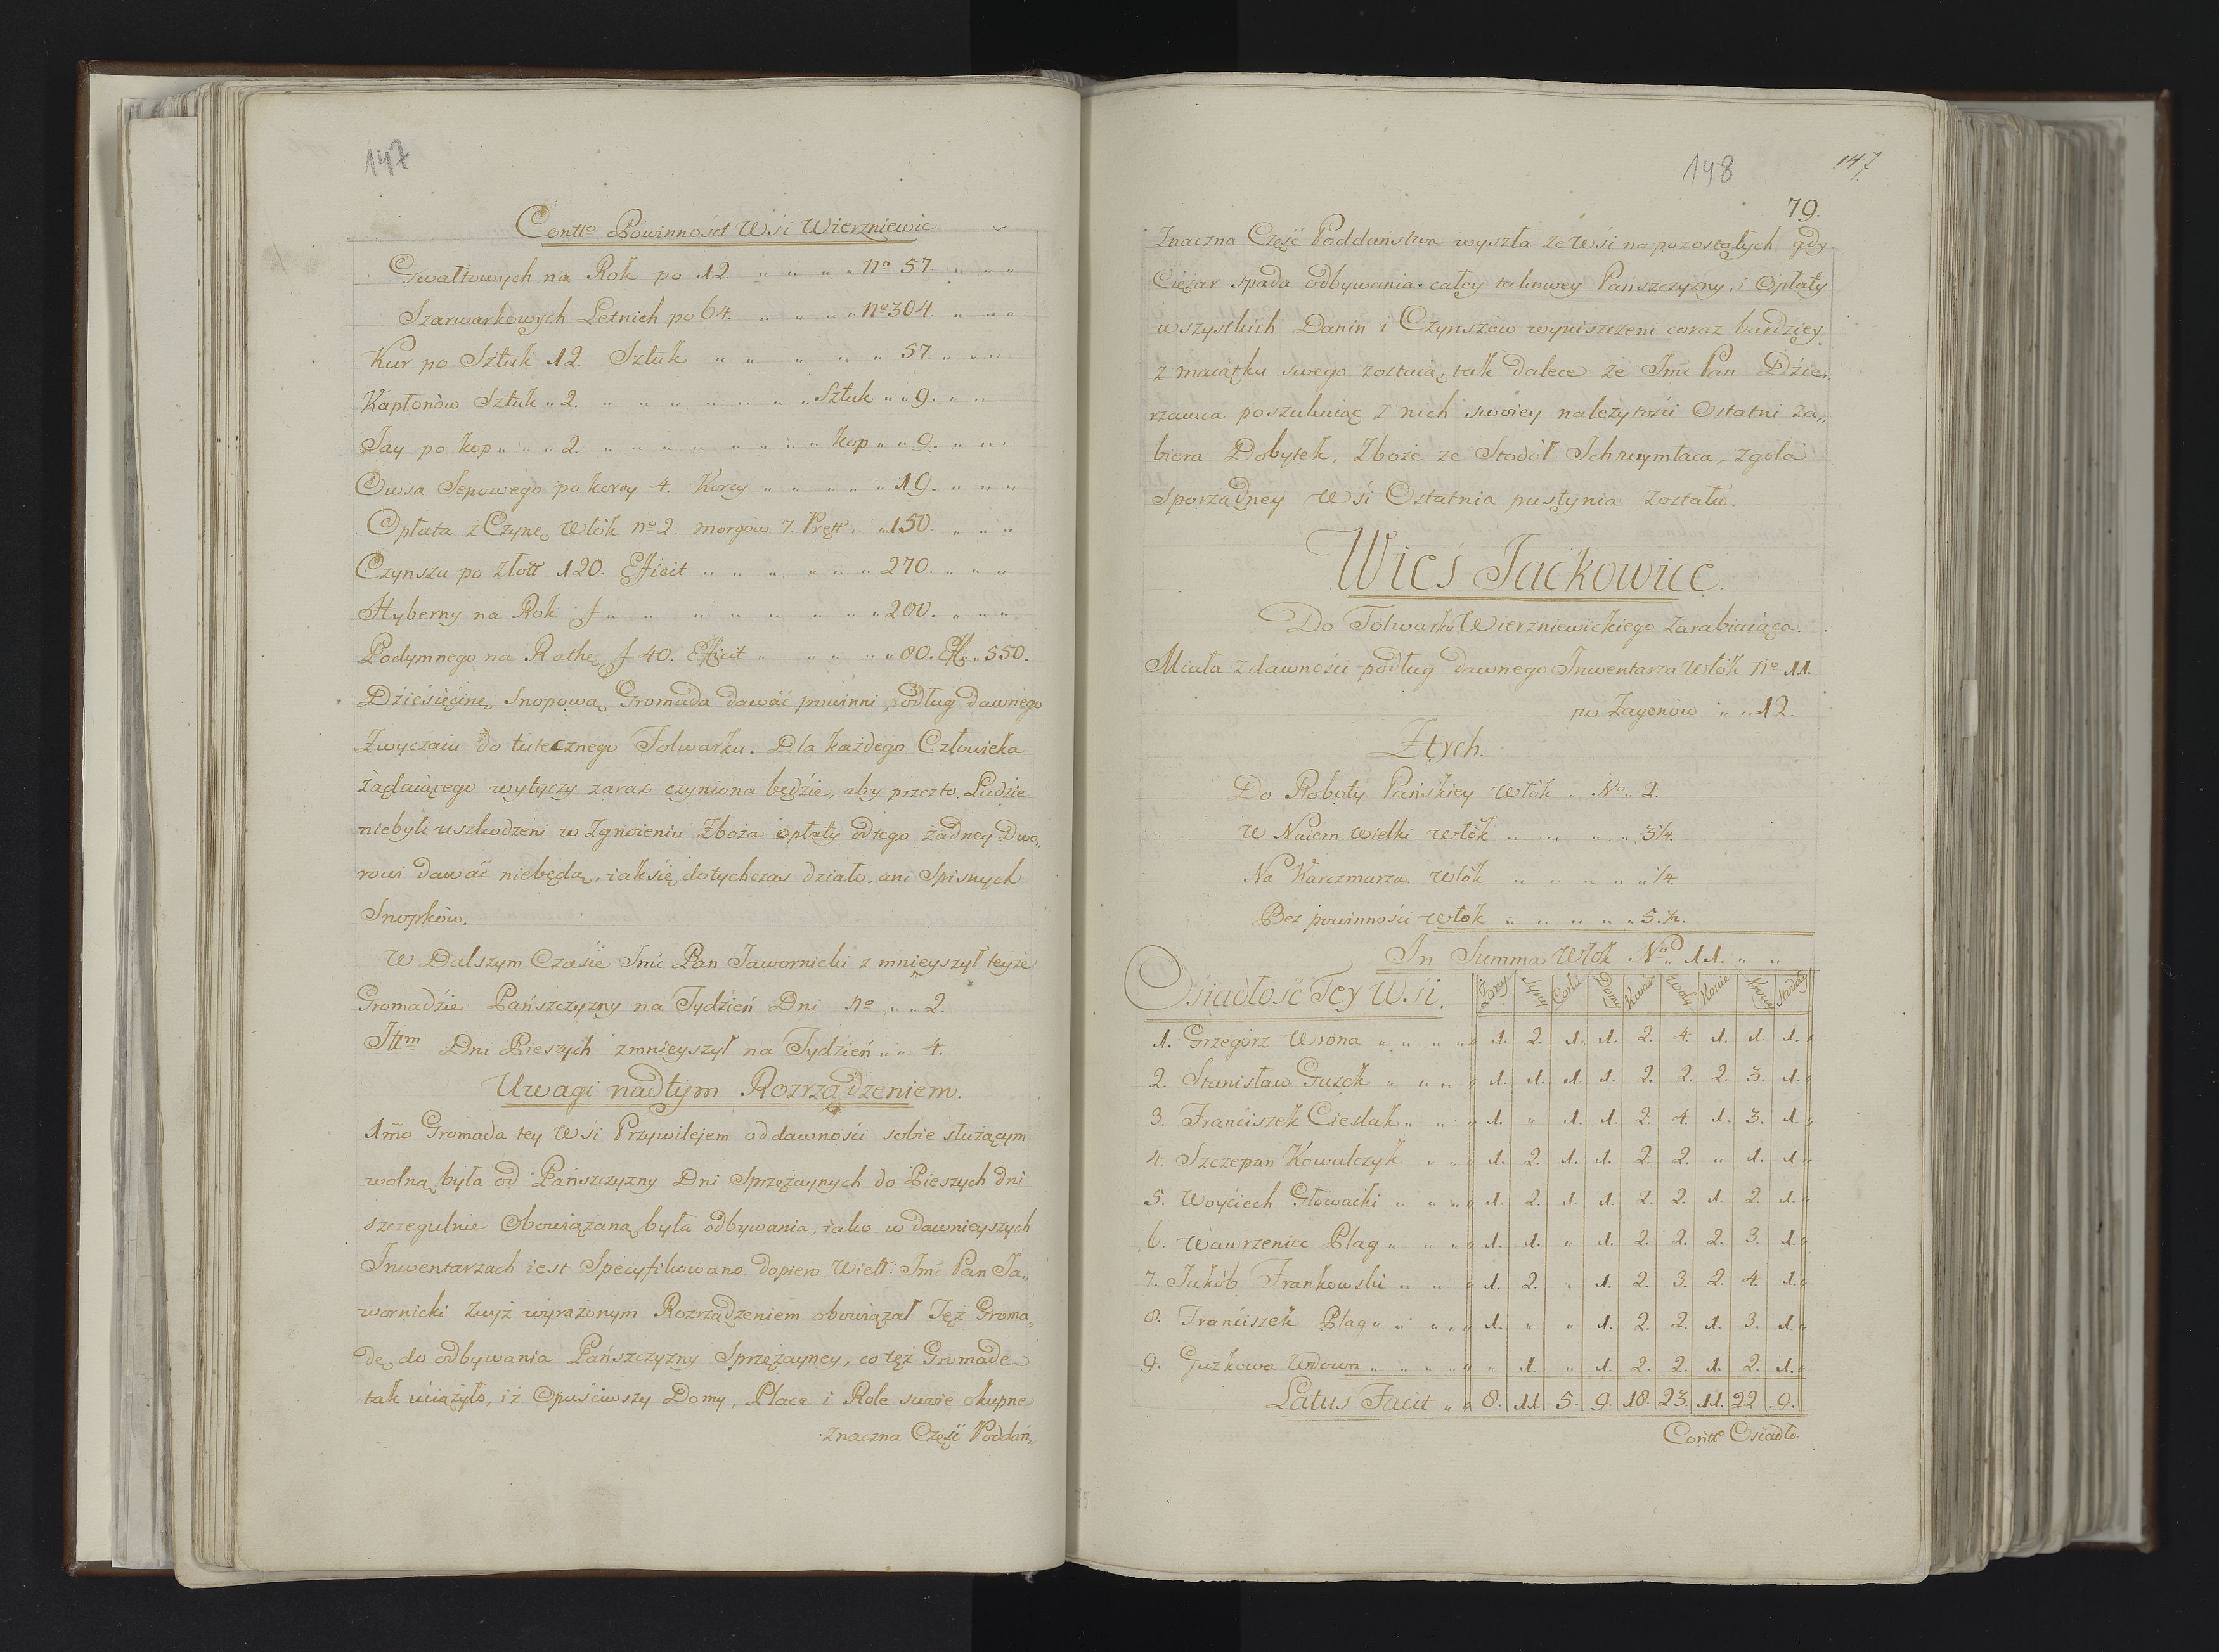 147
Contto Powinnosci Wsi Wierzniewic
Gwałtowych na Rok po 12. „ „ „ „ No 57. „ „ „
Szarwarkowych Letnich po 64. „ „ „ „ No 304. „ „ „
Kur po Sztuk 12. Sztuk „ „ „ „ „ 57. „ „ „
Kapłonów Sztuk „ 2. „ „ „ „ „ „ „ Sztuk „ „ 9. „ „
Jay po kop „ „ „ 2. „ „ „ „ „ „ „ „ kop „ „ 9. „ „
Owsa Sepowego po korcy 4. Korcy „ „ „ „ „ 19. „ „ „
Opłata z Czynę Włók no 2. morgów 7. Pręt. „ 150. „ „ „
Czynszu po Złott 120. Efficit „ „ „ „ „ „ 270. „ „ „
Hyberny na Rok f „ „ „ „ „ „ „ „ 200. „ „ „
Podymnego na Rathę f 40. Efficit „ „ „ „ „ 80. Eff „ 550.
Dziesięcinę Snopową Gromada dawać powinni podług dawnego
Zwyczaiu do tutecznego Folwarku. Dla każdego Człowieka
żądaiącego wytyczy zaraz czyniona będzie, aby przezto Ludzie
niebyli uszkodzeni w Zgnoieniu Zboża opłaty odtego żadney Dwo„
rowi dawać niebędą, iak się dotychczas działo. ani Spisnych
Snopków.
W Dalszym Czasie Jmć Pan Jawornicki zmnieyszył teyże
Gromadzie Pańszczyzny na Tydzień Dni No „ „ 2.
Ittm Dni Pieszych zmnieyszył na Tydzień „ „ 4.
Uwagi nadtym Rozrządzeniem.
1mo Gromada tey Wsi Przywilejem oddawności sobie służącym
wolną była od Pańszczyzny Dni Sprzężaynych do Pieszych dni
szczegulnie Obowiązaną była odbywania, iako w dawnieyszych
Inwentarzach iest Specyfikowano dopiero Wielt. Jmć Pan Ja„
wornicki zwyż wyrażonym Rozrządzeniem obowiązał Też Groma„
dę do odbywania Pańszczyzny Sprzężayney, co też Gromade
tak uciążyło, iż Opuściwszy Domy, Place i Role swoie okupne
Znaczna Część Poddań„
148
147
79.
Znaczna Część Poddaństwa wyszła ze Wsi na pozostałych gdy
Ciężar spada odbywania całey takowey Pańszczyzny i Opłaty
wszystkich Danin i Czynszów wyniszczeni coraz bardziey
z maiątku swego zostaią, tak dalece że Jmć Pan Dzie„
rzawca poszukuiąc z nich swoiey należytości Ostatni Za„
biera Dobytek, Zboże ze Stodół Sam wymłaca, zgoła
Sporządney Wsi Ostatnia pustynia została
Wieś Jackowice.
Do Folwarku Wierzniewickiego Zarabiaiąca.
Miała zdawności podług dawnego Inwentarza Włók No 11.
w Zagonow „ „ 12.
Ztych.
Do Roboty Pańskiey Włók „ No „ 2.
W Naiem wielki Włók „ „ „ „ 3 1/4.
Na Karczmarza Włók „ „ „ „ „ 1/4.
Bez powinności Włók „ „ „ „ „ 5. 1/2.
In Summa Włók No „ 11. „ „
Osiadłość Tey Wsi. Zony Syny Corki Domy Kwart Woły Konie Krowy Stodoły
1. Grzegorz Wrona „ „ „ „ 1. 2. 1. 1. 2. 4. 1. 1. 1.
2. Stanisław Guzek „ „ „ „ 1. 1. 1. 1. 2. 2. 2. 3. 1.
3. Franciszek Cieslak „ „ „ 1. „ 1. 1. 2. 4. 1. 3. 1.
4. Szczepan Kowalczyk „ „ „ 1. 2. 1. 1. 2. 2. „ 1. 1.
5. Woyciech Głowacki „ „ „ 1. 2. 1. 1. 2. 2. 1. 2. 1.
6. Wawrzeniec Plag „ „ „ „ 1. 1. „ 1. 2. 2. 2. 3. 1.
7. Jakób Frankowski „ „ „ 1. 2. „ 1. 2. 3. 2. 4. 1.
8. Franciszek Plag „ „ „ „ 1. „ „ 1. 2. 2. 1. 3. 1.
9. Guzkowa Wdowa „ „ „ „ „ 1. „ 1. 2. 2. 1. 2. 1.
Latus Facit „ 8. 11. 5. 9. 18. 23. 11. 22 9.
Contto Osiadło.